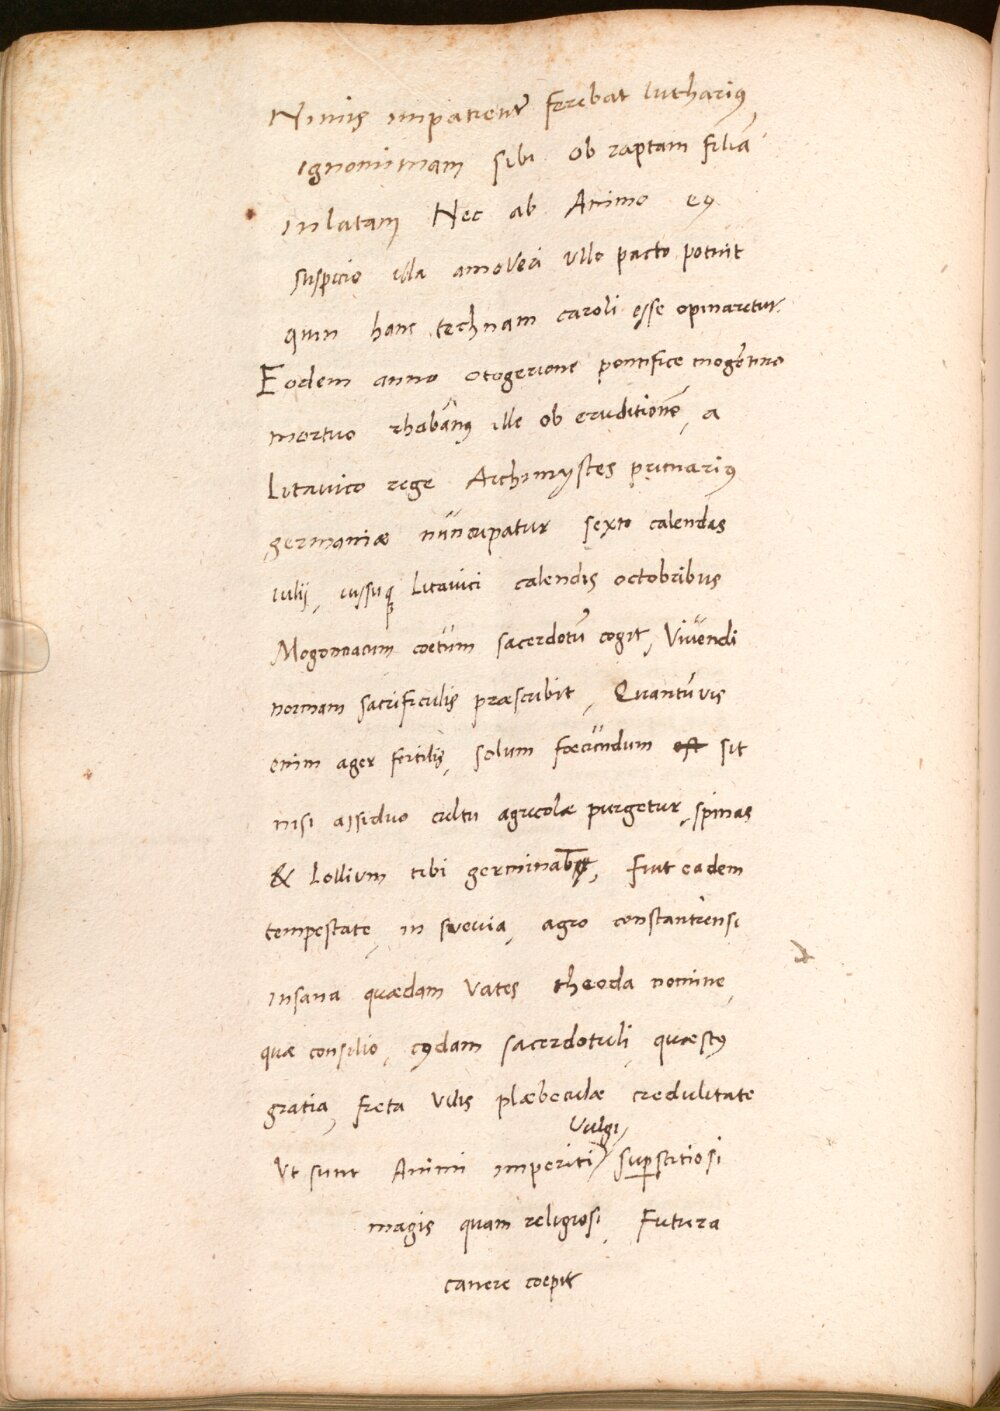 Nimis impatient̃ ferebat luthariꝰ
ignominiam sibi ob raptam filiā
inlatam Nec ab Animo eꝰ
suspicio illa amoveri ullo pacto potuit
quin hanc technam caroli esse opinaretur.
Eodem anno otogerione pontifice mogẽtino
mortuo rhabānꝰ ille ob eruditionẽ, a
Litavico rege Archimystes primariꝰ
germaniæ nuncupatur sexto calendas
iulij, iussuqꝫ Litavici calendis octobribus
Mogontiacum coetum sacerdotū cogit, Vivendi
normam sacrificulis præscribit, Quantūvis
enim ager fertilis, solum foecundum est sit
nisi assiduo cultu agricolæ purgetur, spinas
& Lollium tibi germinab, Fuit eadem
tempestate, in suevia, agro constantiensi
insana quædam Vates theoda nomine,
quæ consilio, cꝰdam sacerdotuli, quæstꝰ
gratia, freta Vilis plæbeculæ credulitate
Vulgi,
Vt sunt Animi imperiti suꝑstitiosi
magis quam religiosi, Futura
canere coepit